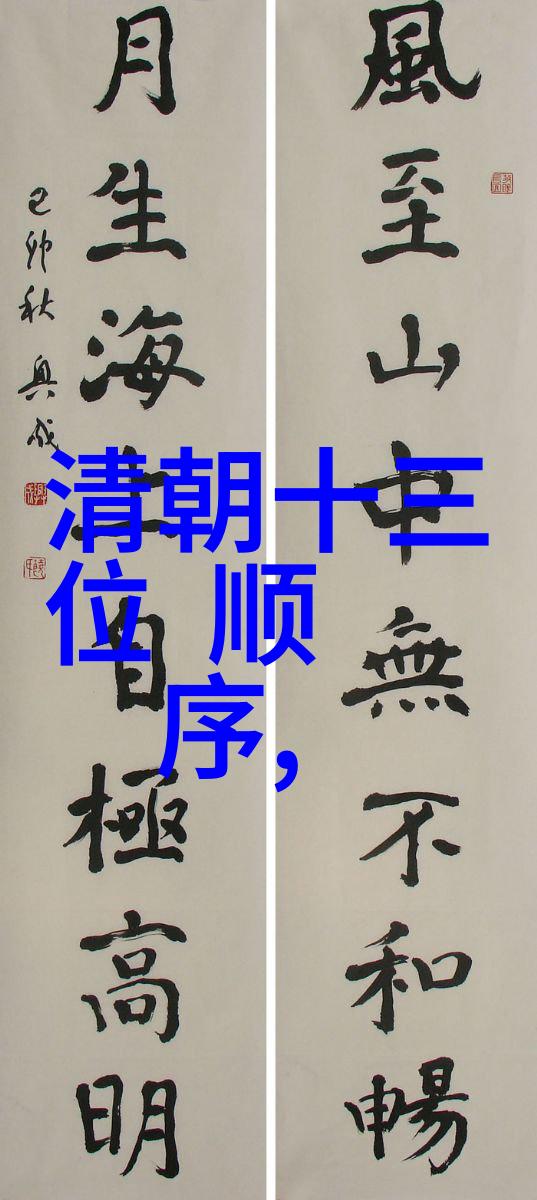 風至山中無不和暢
月生海上自極高明
己卯秋
清朝十三
位 顺
序,